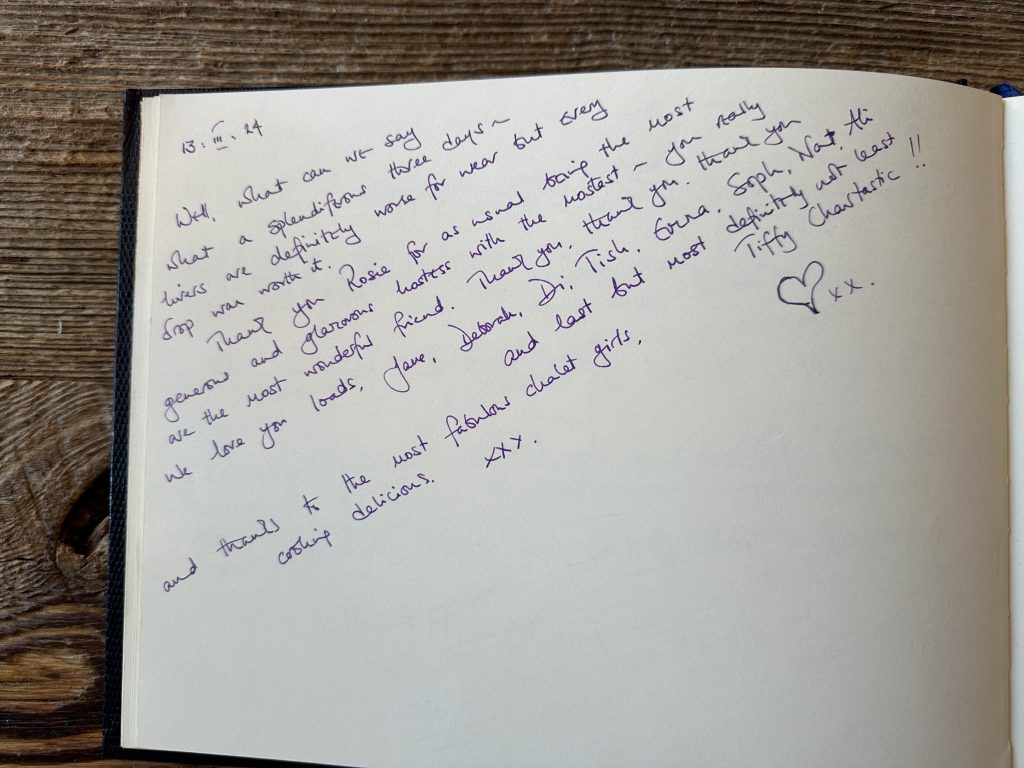 13. III. 24
Well, what can we say
what a splendiferous three days ~
livers are definitely worse for wear but every
drop was worth it.
Thank you Rosie for as usual being the most
generous and glamorous hostess with the mostest ~ you really
are the most wonderful friend. Thank you, thank you. thank you
we love you loads, Jane, Deborah, Di, Tish, Emma, Soph, Nat, Ali
and last but most definitely not least
Tiffy Chartastic !!
♡ xx.
and thanks to the most fabulous chalet girls,
cooking delicious. xxx.